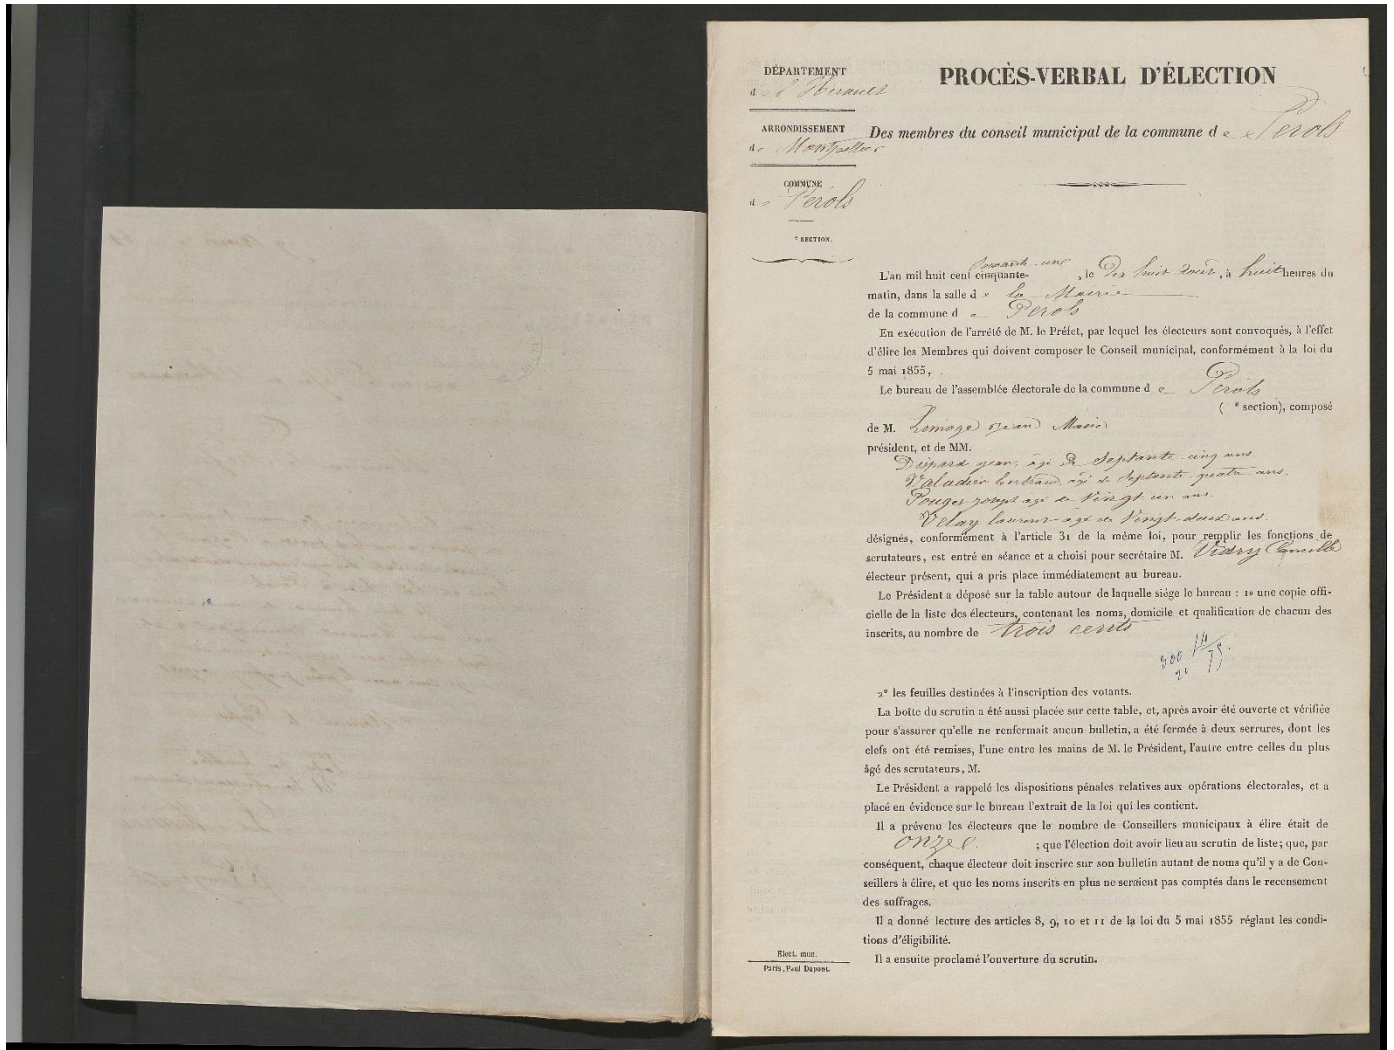 DÉPARTEMENT
d l'Hérault
ARRONDISSEMENT
de Montpellier
COMMUNE
de Pérols
e SECTION.
PROCÈS-VERBAL D'ÉLECTION
Des membres du conseil municipal de la commune de Pérols
L'an mil huit cent cinquante- soixante-une, le Dix huit août, à huit heures du
matin, dans la salle de la Mairie
de la commune de Perols
En exécution de l'arrêté de M. le Préfet, par lequel les électeurs sont convoqués, à l'effet
d'élire les Membres qui doivent composer le Conseil municipal, conformément à la loi du
5 mai 1855,
Le bureau de l'assemblée électorale de la commune de Pérols
( e section), composé
de M. Limoge Jean Marie
président, et de MM.
Dispard jean, âgé de Septante-cinq ans
Valadier bertrand, âgé de Septante-quatre ans.
Pouget joseph âgé de Vingt un ans.
Velay laurent âgé de Vingt-deux ans.
désignés, conformément à l'article 31 de la même loi, pour remplir les fonctions de
scrutateurs, est entré en séance et a choisi pour secrétaire M. Vidry Camille
électeur présent, qui a pris place immédiatement au bureau.
Le Président a déposé sur la table autour de laquelle siége le bureau : 1º une copie offi-
cielle de la liste des électeurs, contenant les noms, domicile et qualification de chacun des
inscrits, au nombre de trois cents
300 14
20 75
2º les feuilles destinées à l'inscription des votants.
La boîte du scrutin a été aussi placée sur cette table, et, après avoir été ouverte et vérifiée
pour s'assurer qu'elle ne renfermait aucun bulletin, a été fermée à deux serrures, dont les
clefs ont été remises, l'une entre les mains de M. le Président, l'autre entre celles du plus
âgé des scrutateurs, M.
Le Président a rappelé les dispositions pénales relatives aux opérations électorales, et a
placé en évidence sur le bureau l'extrait de la loi qui les contient.
Il a prévenu les électeurs que le nombre de Conseillers municipaux à élire était de
onze ; que l'élection doit avoir lieu au scrutin de liste; que, par
conséquent, chaque électeur doit inscrire sur son bulletin autant de noms qu'il y a de Con-
seillers à élire, et que les noms inscrits en plus ne seraient pas comptés dans le recensement
des suffrages.
Il a donné lecture des articles 8, 9, 10 et 11 de la loi du 5 mai 1855 réglant les condi-
tions d'éligibilité.
Il a ensuite proclamé l'ouverture du scrutin.
Elect. mun.
Paris, Paul Dupont.